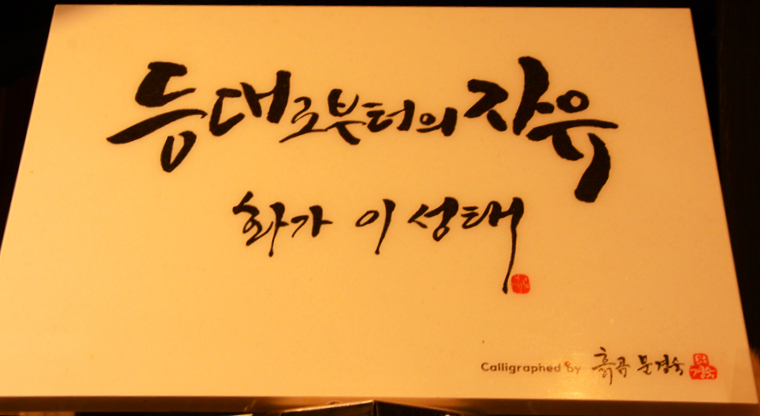 등대로부터의 자유
화가 이성태
Calligraphed by 흙곰 문경숙